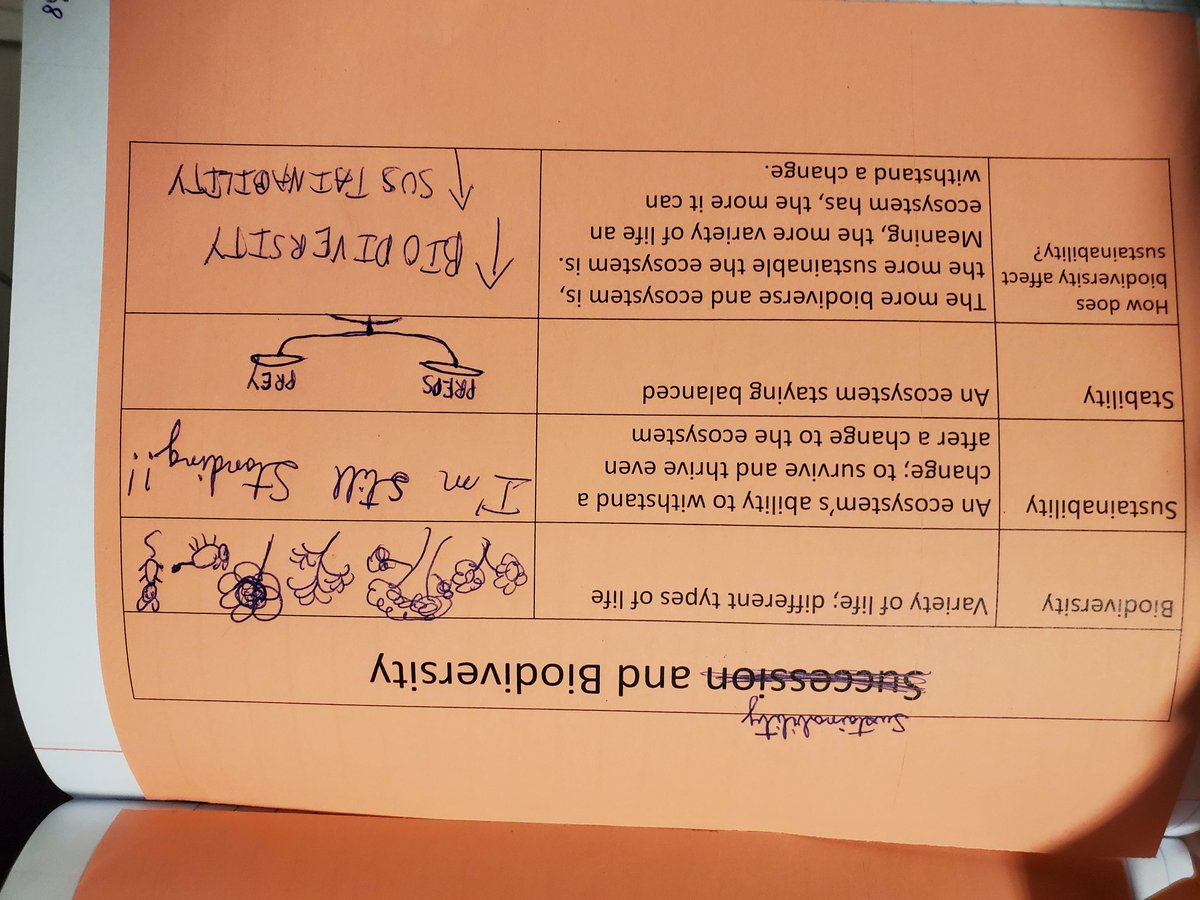 Sustainability
Succession and Biodiversity
Biodiversity
Variety of life; different types of life
Sustainability
An ecosystem's ability to withstand a
change; to survive and thrive even
after a change to the ecosystem
I'm still standing!!
Stability
An ecosystem staying balanced
PREDS
PREY
How does
biodiversity affect
sustainability?
The more biodiverse and ecosystem is,
the more sustainable the ecosystem is.
Meaning, the more variety of life an
ecosystem has, the more it can
withstand a change.
↑ BIODIVERSITY
↑ SUSTAINABILITY